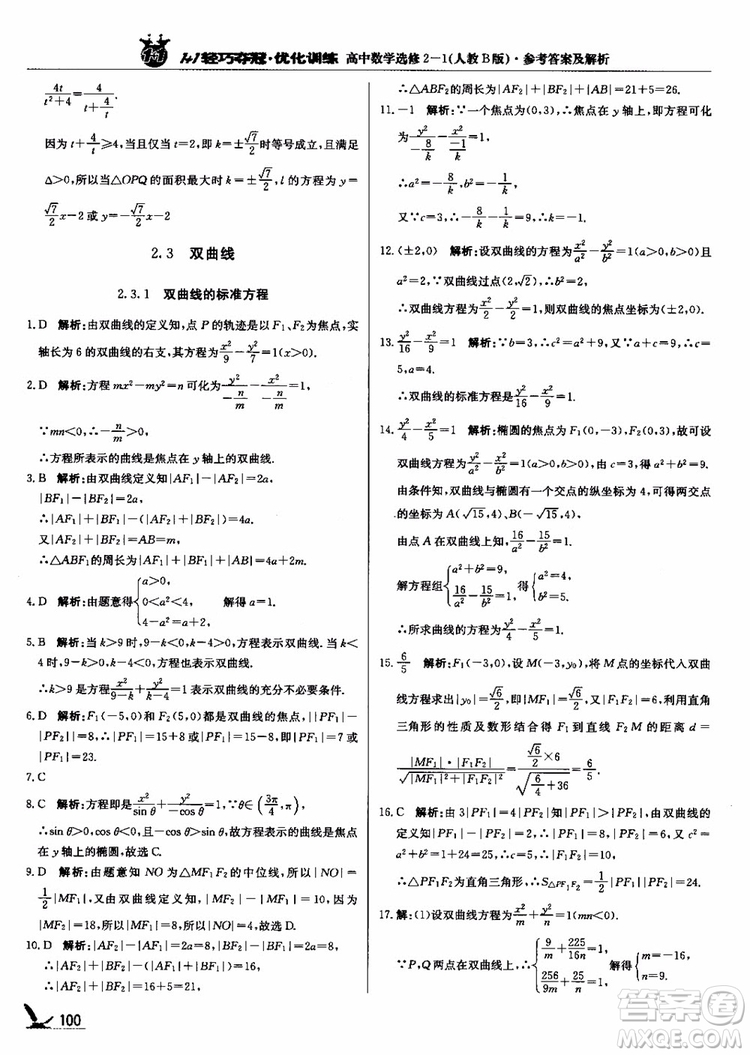 1+1轻巧夺冠·优化训练 高中数学选修2-1(人教B版)·参考答案及解析
4t/(t²+4)=4/(t+4/t).
因为t+4/t≥4,当且仅当t=2,即k=±√7/2时等号成立,且满足
Δ>0,所以当△OPQ的面积最大时k=±√7/2,l的方程为y=
√7/2x-2或y=-√7/2x-2.
2.3 双曲线
2.3.1 双曲线的标准方程
1.D 解析:由双曲线的定义知,点P的轨迹是以F₁、F₂为焦点,实
轴长为6的双曲线的右支,其方程为x²/9-y²/7=1(x>0).
2.D 解析:方程mx²-my²=n可化为y²/(-n/m)-x²/(-n/m)=1,
∵mn<0,∴-n/m>0.
∴方程所表示的曲线是焦点在y轴上的双曲线.
3.B 解析:由双曲线定义知|AF₁|-|AF₂|=2a,
|BF₁|-|BF₂|=2a,
∴|AF₁|+|BF₁|-(|AF₂|+|BF₂|)=4a.
又|AF₂|+|BF₂|=|AB|=m,
∴△ABF₁的周长为|AF₁|+|BF₁|+|AB|=4a+2m.
4.D 解析:由题意得{a>0, 0<a²<4, 4-a²=a+2, 解得a=1.
5.B 解析:当k>9时,9-k<0,k-4>0,方程表示双曲线.当k<
4时,9-k>0,k-4<0,方程也表示双曲线.
∴k>9是方程x²/(9-k)+y²/(k-4)=1表示双曲线的充分不必要条件.
6.D 解析:F₁(-5,0)和F₂(5,0)为双曲线的焦点,||PF₁|-
|PF₂||=8,∴|PF₁|-|PF₂|=8或|PF₂|-|PF₁|=8,∴|PF₁|=7或
|PF₁|=23.
7.C
8.C 解析:方程即是x²/sin θ+y²/(-cos θ)=1,∵θ∈(3π/4,π),
∴sin θ>0,cos θ<0,且-cos θ>sin θ,故方程表示的曲线是焦点
在y轴上的椭圆,故选C.
9.D 解析:由题意知NO为△MF₁F₂的中位线,所以|NO|=
1/2|MF₁|,又由双曲线定义知,|MF₂|-|MF₁|=10,所以
|MF₁|=8,所以|NO|=4,故选D.
10.D 解析:|AF₂|-|AF₁|=2a=8,|BF₂|-|BF₁|=2a=8,
∴|AF₂|+|BF₂|-(|AF₁|+|BF₁|)=16,
∴|AF₂|+|BF₂|=16+5=21,
∴△ABF₂的周长为|AF₂|+|BF₂|+|AB|=21+5=26.
11.-1 解析:∵一个焦点为(0,3),∴焦点在y轴上,即方程可化
为y²/(-8/k)-x²/(-1/k)=1,
∴a²=-8/k,b²=-1/k,
又∵c=3,∴-8/k-1/k=9,∴k=-1.
12.(±2,0) 解析:设双曲线的方程为x²/a²-y²/b²=1(a>0,b>0),且
a²=2,∵双曲线过点(2,√2),∴b²=2,
∴双曲线方程为x²/2-y²/2=1,则双曲线的焦点坐标为(±2,0).
13.y²/16-x²/9=1 解析:∵b=3,∴a²=c²-b²=5²-3²=16,且c
=5,∴双曲线的标准方程是y²/16-x²/9=1.
14.y²/4-x²/5=1 解析:椭圆的焦点为F₁(0,-3),F₂(0,3),故可设
双曲线方程为y²/a²-x²/b²=1(a>0,b>0),且c=3,a²+b²=9.
由条件知,双曲线与椭圆有一个交点的纵坐标为4,可得两交
点坐标为A(√15,4),B(-√15,4),
由点A在双曲线上知,16/a²-15/b²=1.
解方程组{a²+b²=9, 16/a²-15/b²=1, 得{a²=4, b²=5,
∴所求曲线的方程为y²/4-x²/5=1.
15.6/5 解析:F₁(-3,0),设M(-3,y₀),将M点的坐标代入双曲
线方程求出|y₀|=√6/2,即|MF₁|=√6/2,利用直角
三角形的性质及数形结合得F₁到直线F₂M的距离d=
|MF₁|·|F₁F₂|/√(|MF₁|²+|F₁F₂|²)=(√6/2×6)/√(6/4+36)=6/5.
16.C 解析:由3|PF₁|=4|PF₂|知|PF₁|>|PF₂|,由双曲线的
定义知|PF₁|-|PF₂|=2,∴|PF₁|=8,|PF₂|=6,又c²=
a²+b²=25,∴c=5,∴|F₁F₂|=10,
∴△PF₁F₂为直角三角形,∴S△PF₁F₂=1/2|PF₁||PF₂|=24.
17.解:(1)设双曲线方程为x²/m+y²/n=1(mn<0),
∵P、Q两点在双曲线上,∴{9/m+225/16n=1, 256/9m+25/n=1, 解得{m=-16, n=9,
100
答案圈